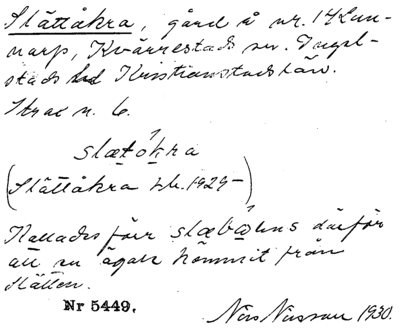 Slättåkra, gård å nr. 14 Lun-
narp, Kvärrestads sn. Ingel-
stads hd Kristianstads län.
Strax n. 6.
slætókra
(Slättåkra lk. 1929-)
Kallades förr slæbǫens därför
att en ägare kommit från
Slätten.
Nr 5449.
Nils Nilsson 1930.